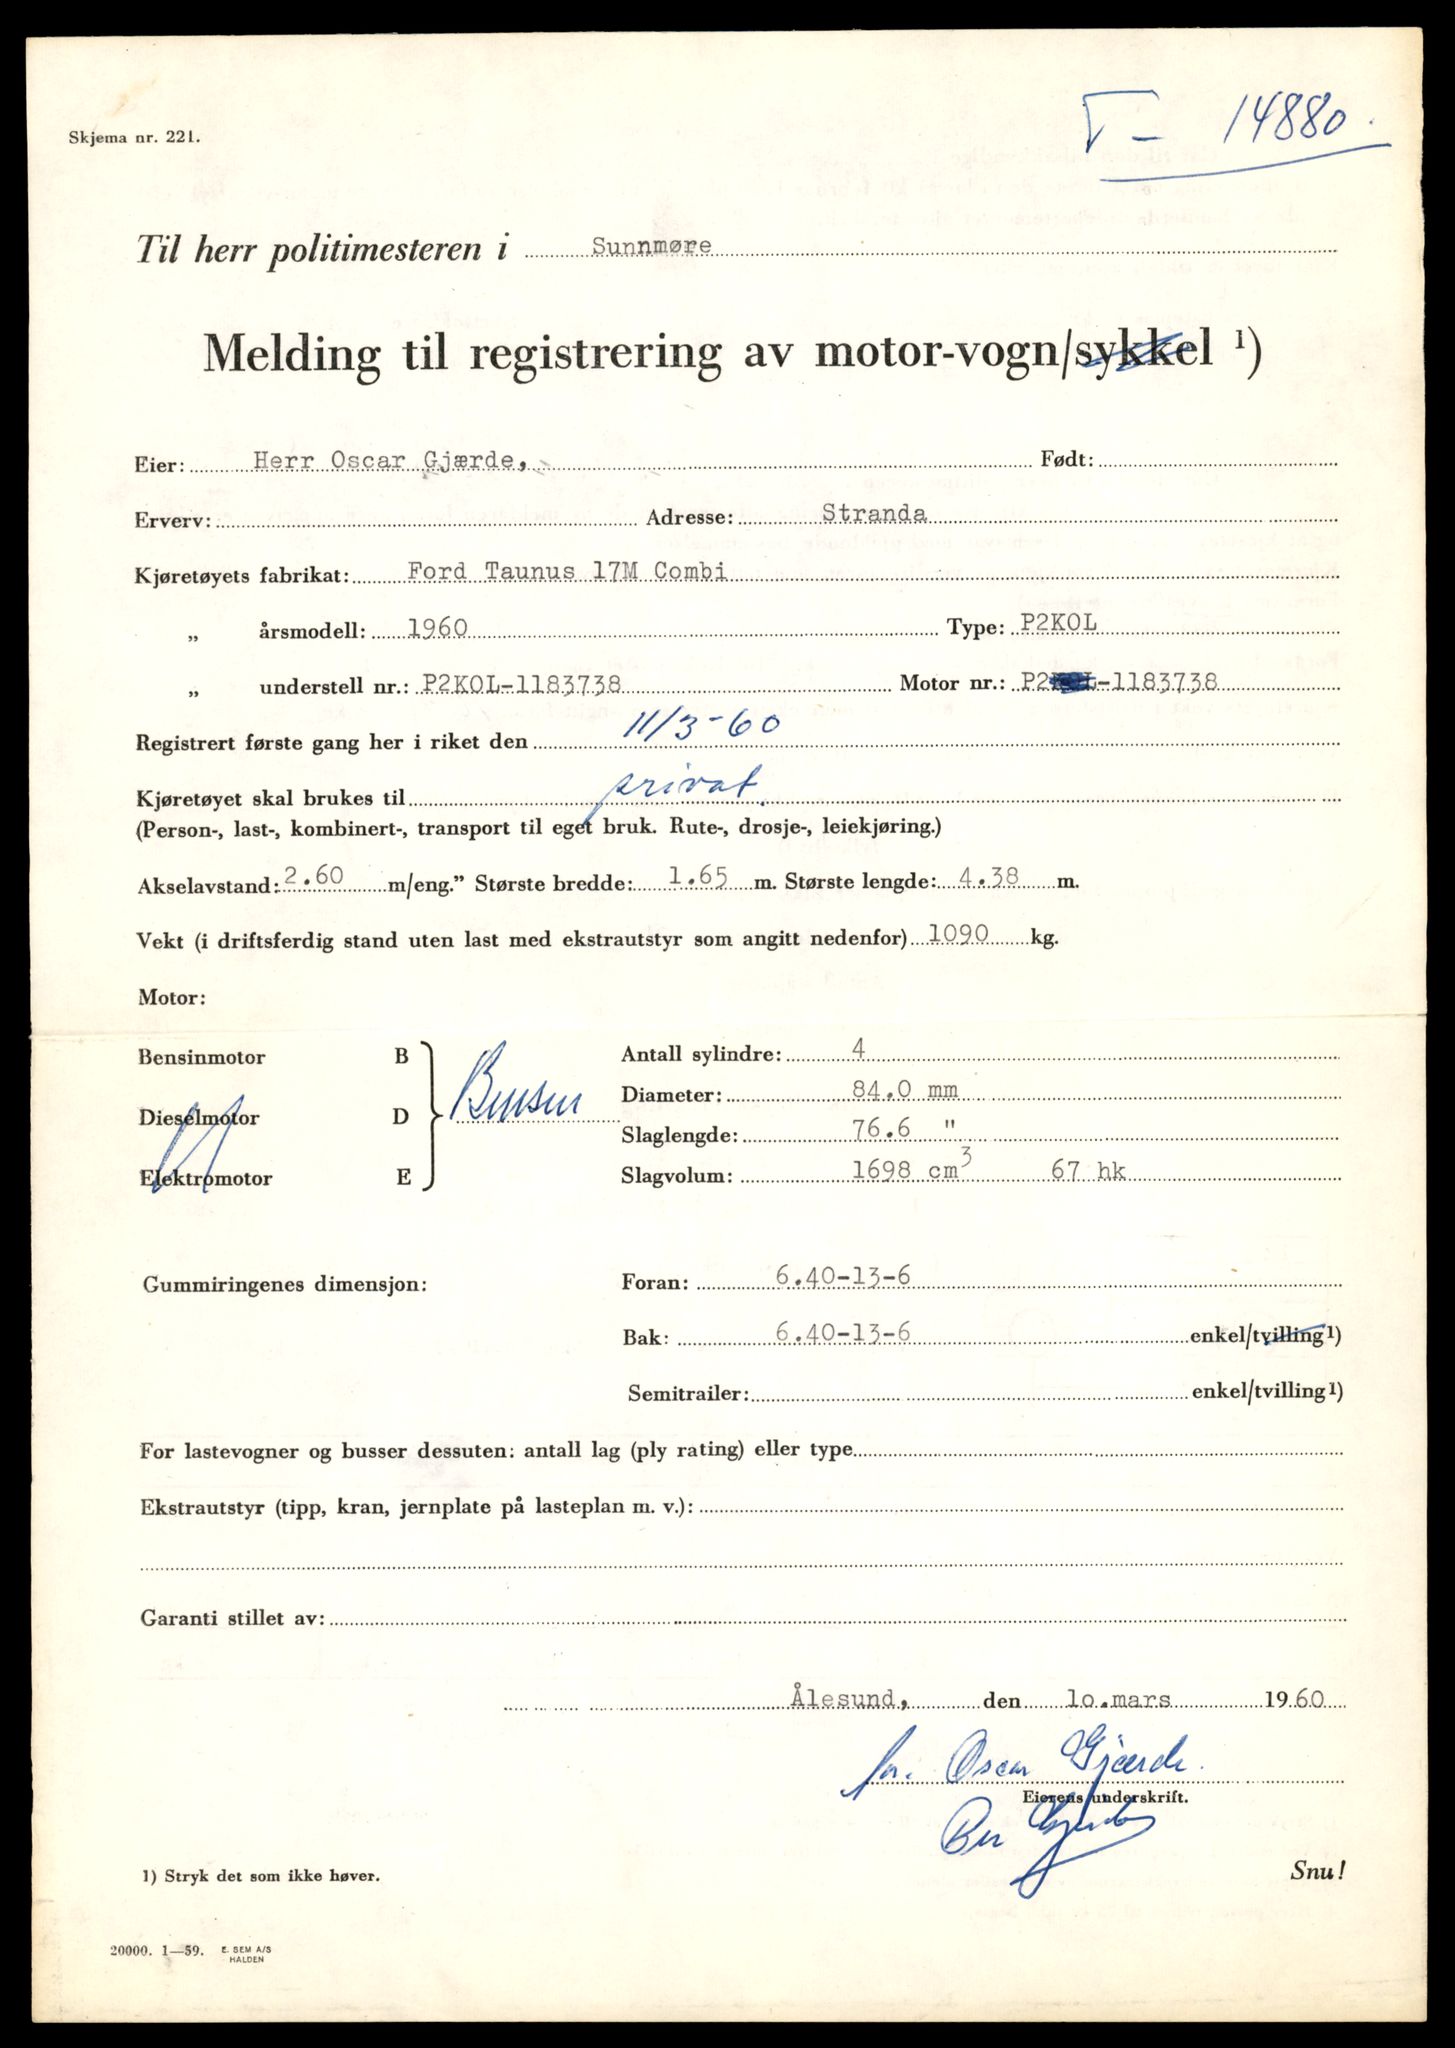 T - 14880.
Skjema nr. 221.
Til herr politimesteren i Sunnmøre
Melding til registrering av motor-vogn/sykkel ¹)
Eier: Herr Oscar Gjærde, Født:
Erverv: Adresse: Stranda
Kjøretøyets fabrikat: Ford Taunus 17M Combi
„ årsmodell: 1960 Type: P2KOL
„ understell nr.: P2KOL-1183738 Motor nr.: P2KOL-1183738
Registrert første gang her i riket den 11/3-60
Kjøretøyet skal brukes til privat.
(Person-, last-, kombinert-, transport til eget bruk. Rute-, drosje-, leiekjøring.)
Akselavstand: 2.60 m/eng.” Største bredde: 1.65 m. Største lengde: 4.38 m.
Vekt (i driftsferdig stand uten last med ekstrautstyr som angitt nedenfor) 1090 kg.
Motor:
Bensinmotor B Antall sylindre: 4
Diameter: 84.0 mm
Dieselmotor D Bensin
Slaglengde: 76.6 "
Elektromotor E Slagvolum: 1698 cm³ 67 hk
Gummiringenes dimensjon: Foran: 6.40-13-6
Bak: 6.40-13-6 enkel/tvilling¹)
Semitrailer: enkel/tvilling¹)
For lastevogner og busser dessuten: antall lag (ply rating) eller type
Ekstrautstyr (tipp, kran, jernplate på lasteplan m. v.):
Garanti stillet av:
Ålesund, den 10.mars 1960
Oscar Gjærde.
Eierens underskrift.
1) Stryk det som ikke høver.
Snu!
20000. 1—59. E. SEM A/S
HALDEN